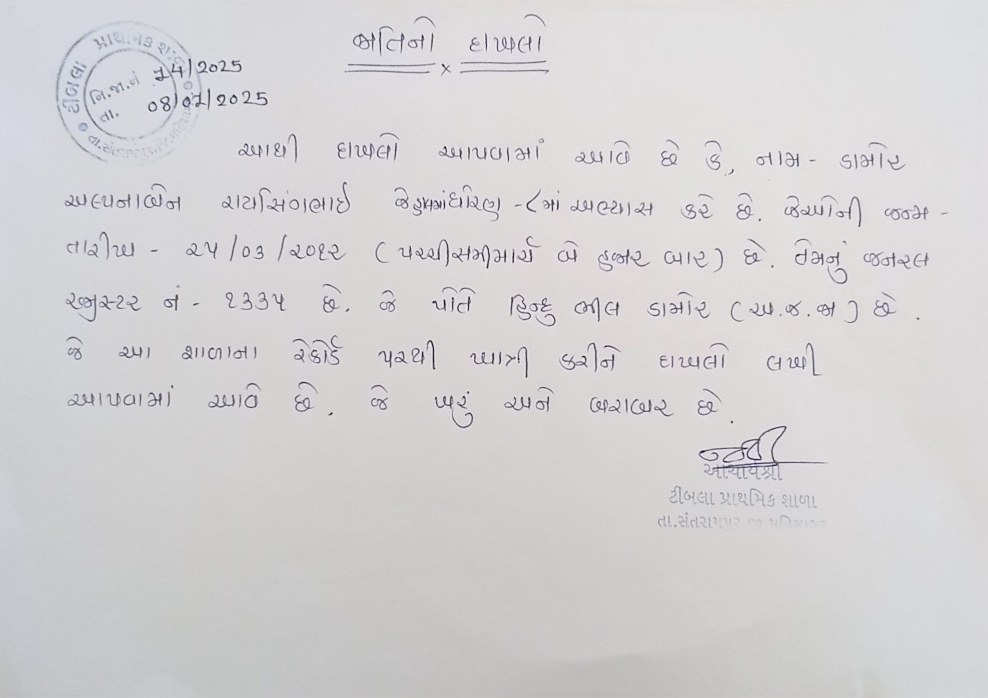 જાતિનો દાખલો
x
ટીબલા પ્રાથમિક શાળા
નિ.જા.નં 74/2025
તા. 08/07/2025
આથી દાખલો આપવામાં આવે છે કે, નામ - ડામોર
અલ્પનાબેન રાયસિંગભાઈ ધોરણ - ૮માં અભ્યાસ કરે છે. જેઓની જન્મ -
તારીખ - ૨૫/૦૩/૨૦૧૨ (પચ્ચીસમીમાર્ચ બે હજાર બાર) છે. તેમનું જનરલ
રજીસ્ટર નં - ૧૩૩૫ છે. જે પોતે હિન્દુ ભીલ ડામોર (અ.જ.જા) છે.
જે આ શાળાના રેકોર્ડ પરથી ખાત્રી કરીને દાખલો લખી
આપવામાં આવે છે. જે ખરું અને બરાબર છે.
આચાર્યશ્રી
ટીબલા પ્રાથમિક શાળા
તા.સંતરામપુર જી